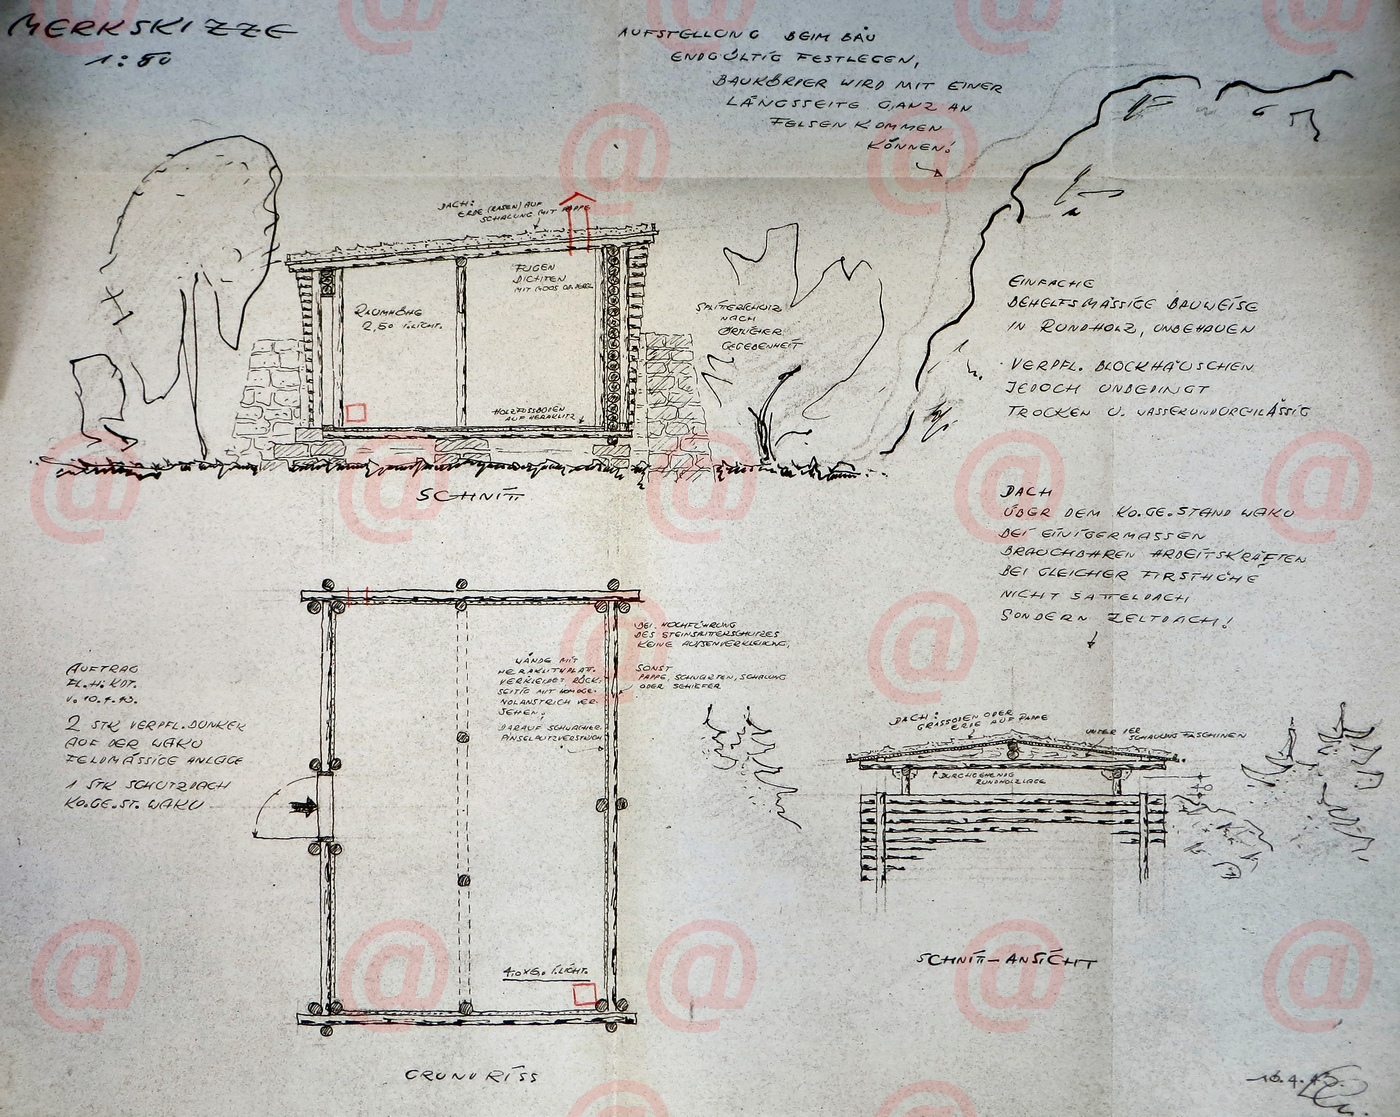 MERKSKIZZE
1:50
AUFSTELLUNG BEIM BAU
ENDGÜLTIG FESTLEGEN,
BAUKÖRPER WIRD MIT EINER
LÄNGSSEITE GANZ AN
FELSEN KOMMEN
KÖNNEN!
DACH:
ERDE (RASEN) AUF
SCHALUNG MIT PAPPE
FUGEN
DICHTEN
MIT MOOS OD.
RAUMHÖHE
2,50 I. LICHT.
HOLZFUSSBODEN
AUF HERAKLITZ
SPLITTERSCHUTZ
NACH
ÖRTLICHER
GEGEBENHEIT
SCHNITT
EINFACHE
BEHELFSMÄSSIGE BAUWEISE
IN RUNDHOLZ, UNBEHAUEN
VERPFL. BLOCKHÄUSCHEN
JEDOCH UNBEDINGT
TROCKEN U. WASSERUNDURCHLÄSSIG
DACH
ÜBER DEM KO.GE.STAND WAKO
BEI EINIGERMASSEN
BRAUCHBAREN ARBEITSKRÄFTEN
BEI GLEICHER FIRSTHÖHE
NICHT SATTELDACH
SONDERN ZELTDACH!
AUFTRAG
FL.H.KDT.
V. 10.4.43.
2 STK VERPFL. BUNKER
AUF DER WAKO
FELDMÄSSIGE ANLAGE
1 STK SCHUTZDACH
KO.GE.ST. WAKO
BEI HOCHFÜHRUNG
DES STEINSPLITTERSCHUTZES
KEINE AUßENVERKLEIDUNG,
SONST
PAPPE, SCHWARTEN, SCHALUNG
ODER SCHIEFER
WÄNDE MIT
HERAKLITHPLATT.
VERKLEIDET RÜCK-
SEITIG MIT
NOLANSTRICH VER-
SEHEN;
DARAUF SCHWACHER
PINSELPUTZVERSTRICH
4,0 X 6,0 I. LICHT.
GRUNDRISS
DACH:
GRASSODEN ODER
ERDE AUF PAPPE
UNTER DER
SCHALUNG FASCHINEN
DURCHGEHEND
RUNDHOLZLAGE
SCHNITT-ANSICHT
10.4.43.